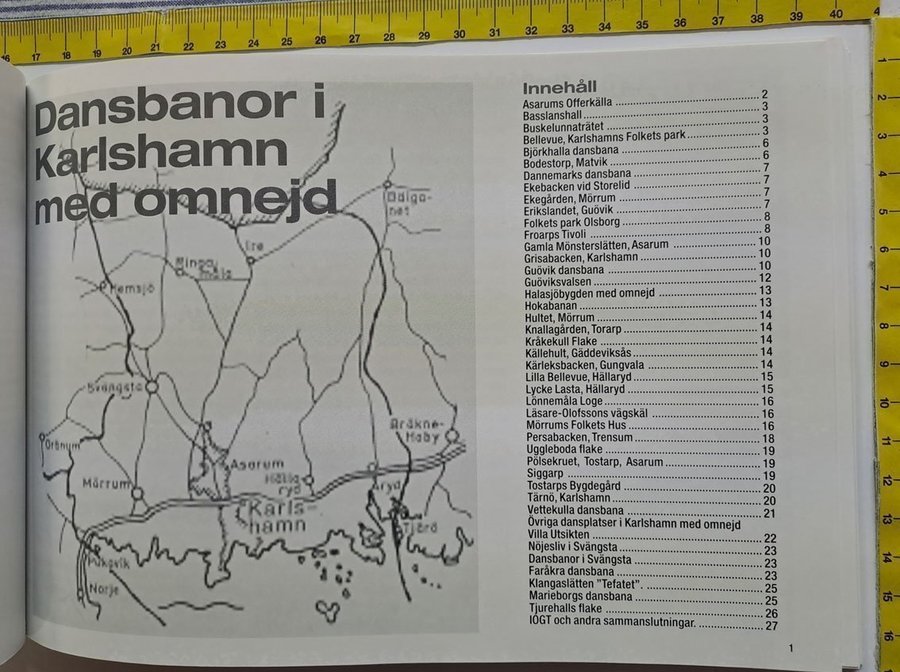 Dansbanor i
Karlshamn
med omnejd
Ire
Hemsjö
Svängsta
Bräkne-
Hoby
Asarum
Mörrum
Hälla
ryd
Åryd
Karls-
hamn
Tjärö
Pukavik
Norje
Innehåll
Asarums Offerkälla 2
Basslanshall 3
Buskelunnaträtet 3
Bellevue, Karlshamns Folkets park 3
Björkhalla dansbana 6
Bodestorp, Matvik 6
Dannemarks dansbana 7
Ekebacken vid Storelid 7
Ekegården, Mörrum 7
Erikslandet, Guövik 7
Folkets park Olsborg 8
Froarps Tivoli 8
Gamla Mönsterslätten, Asarum 10
Grisabacken, Karlshamn 10
Guövik dansbana 10
Guöviksvalsen 12
Halasjöbygden med omnejd 13
Hokabanan 13
Hultet, Mörrum 14
Knallagården, Torarp 14
Kråkekull Flake 14
Källehult, Gäddeviksås 14
Kärleksbacken, Gungvala 14
Lilla Bellevue, Hällaryd 15
Lycke Lasta, Hällaryd 15
Lönnemåla Loge 16
Läsare-Olofssons vägskäl 16
Mörrums Folkets Hus 16
Persabacken, Trensum 18
Uggleboda flake 19
Pölsekruet, Tostarp, Asarum 19
Siggarp 19
Tostarps Bygdegård 20
Tärnö, Karlshamn 20
Vettekulla dansbana 21
Övriga dansplatser i Karlshamn med omnejd
Villa Utsikten 22
Nöjesliv i Svängsta 23
Dansbanor i Svängsta 23
Faråkra dansbana 23
Klangaslätten "Tefatet". 25
Marieborgs dansbana 25
Tjurehalls flake 26
IOGT och andra sammanslutningar. 27
1